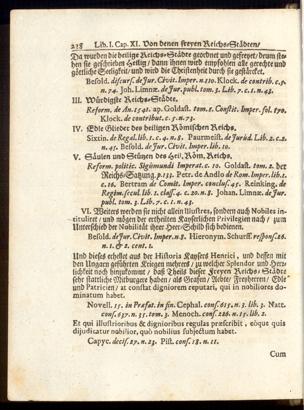 218 Lib. I. Cap. XI. Von denen freyen Reichs-Städten/
Da wurden die heilige Reichs-Städte geordnet und gefreyet/ drum ste-
hen sie geschrieben Heilig/ dann ihnen wird empfohlen alle gerechte und
göttliche Seeligkeit/ und wird die Christenheit durch sie gestärcket.
Besold. discurs. de Jur. Civit. Imper. n. 170. Klock. de contrib. c. 5.
n. 74. Joh. Limnæ. de Jur. publ. tom. 3. Lib. 7. c. 1. n. 43.
III. Würdigste Reichs-Städte.
Reform. de An. 1542. ap. Goldast. tom. 1. Constit. Imper. fol. 570.
Klock. de contribut. c. 5. n. 73.
IV. Edle Glieder des heiligen Römischen Reichs.
Sixtin. de Regal. lib. 1. c. 4. n. 85. Paurmeist. de Jurisd. Lib. 2. c. 2.
n. 45. Besold. de Jur. Civit. Imper. lib. 10.
V. Säulen und Stützen des Heil. Röm. Reichs.
Reform. politic. Sigismundi Imperat. c. 10. Goldast. tom. 2. der
Reichs-Satzung. p. 133. Petr. de Andlo de Rom. Imper. lib. 1.
c. 16. Bertram de Comit. Imper. conclus. 45. Reinking. de
Regim. secul. lib. 1. class. 4. c. 20. n. 3. Johan. Limnæ. de Jur.
publ. tom. 3. Lib. 7. c. 1. n. 43.
VI. Weiters werden sie nicht allein Illustres, sondern auch Nobiles in-
tituliret/ und mögen der ertheilten Kayserlichen Privilegien nach/ zum
Unterschied der Nobilität ihrer Heer-Schild sich bedienen.
Besold. de Jur. Civit. Imper. n. 3. Hieronym. Schurff. respons. 26.
n. 1. & 2. cent. 1.
Und dieses erhellet aus der Historia Kaysers Henrici, und dessen mit
den Ungarn geführten Kriegen mehrers/ zu welcher Splendor und Herr-
lichkeit noch hinzukommt/ daß Theils dieser freyen Reichs-Städte
sehr stattliche Mitbürger haben/ als Grafen/ Aebte/ Freyherren/ Edle
und Patricien/ at constat digniorem reputari, qui in nobiliores do-
minatum habet.
Novell. 15. in Præfat. in fin. Cephal. cons. 615. n. 3. lib. 3. Natt.
cons. 637. n. 35. tom. 3. Menoch. cons. 226. n. 15. lib. 2.
Et qui illustrioribus & dignioribus regulas præscribit, eòque quis
dijudicatur nobilior, quò nobilius subjectum habet.
Capyc. decis. 27. n. 23. Pist. cons. 18. n. 11.
Cum